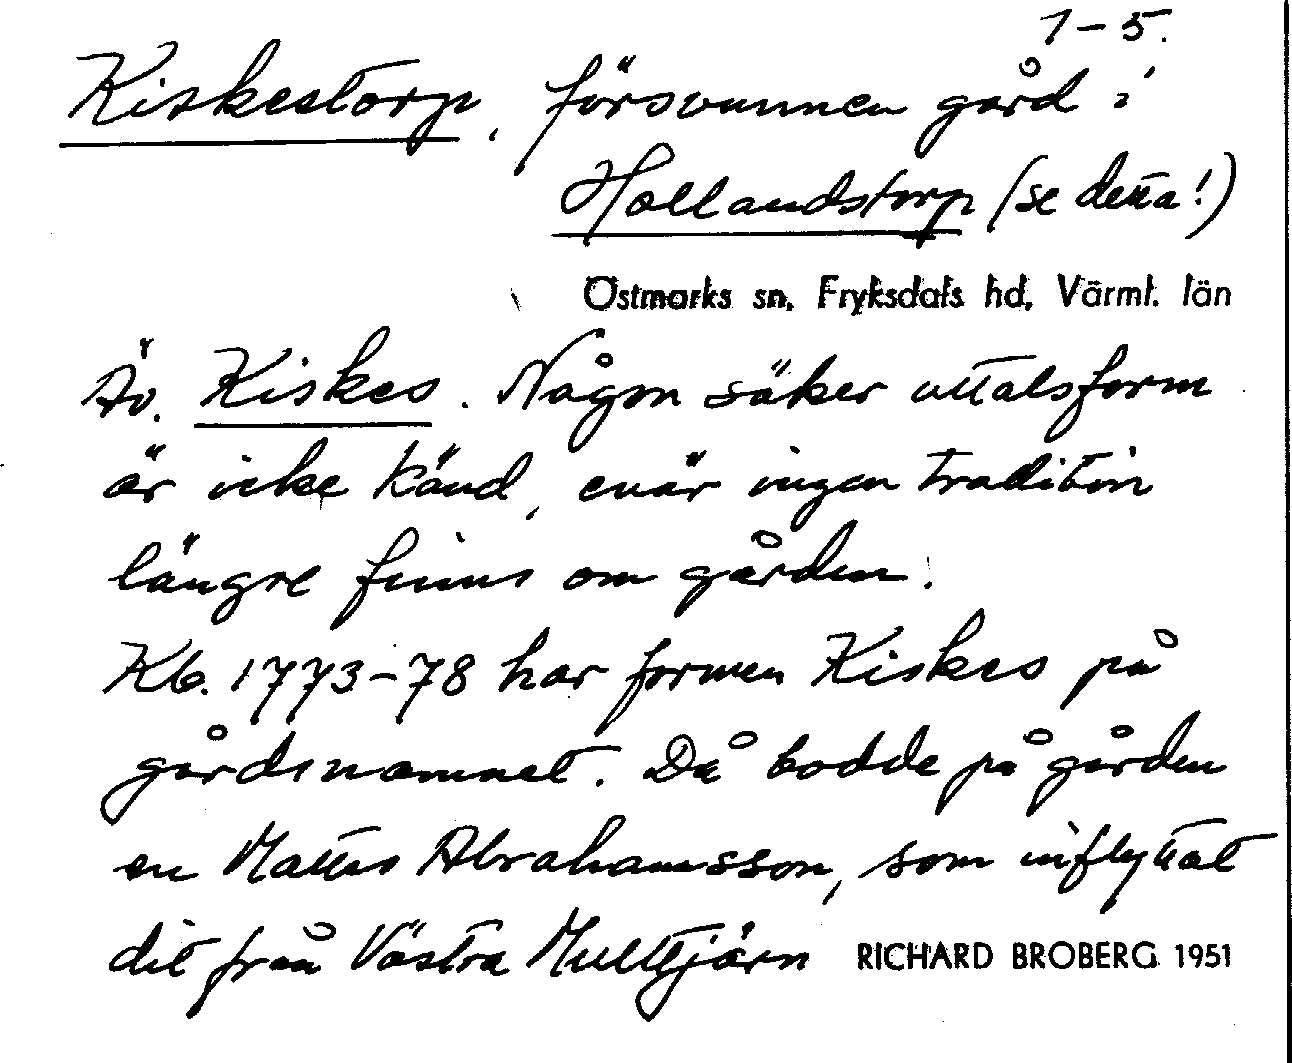 1-5.
Kiskestorp, försvunnen gård i
Hollandstorp (se detta!)
Östmarks sn, Fryksdals hd, Värml. län
Äv. Kiskes. Någon säker uttalsform
är icke känd, enär ingen tradition
längre finns om gården.
Kb. 1773-78 har formen Kiskes på
gårdsnamnet. Då bodde på gården
en Mattes Abrahamsson, som inflyttat
dit från Västra Multtjärn RICHARD BROBERG 1951